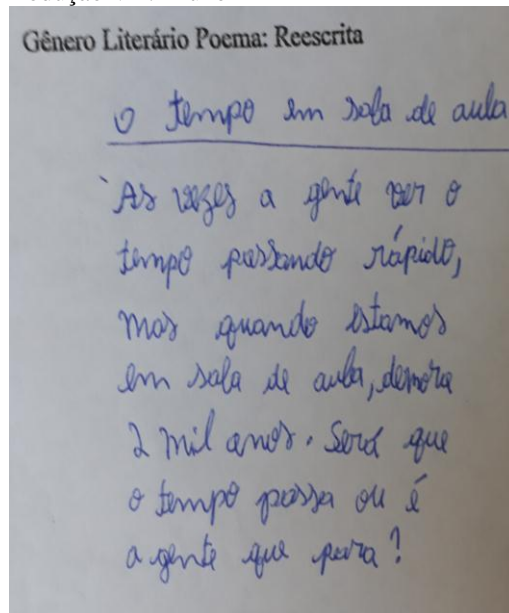 Gênero Literário Poema: Reescrita
O tempo em sala de aula
Às vezes a gente ver o
tempo passando rápido,
mas quando estamos
em sala de aula, demora
2 mil anos. Será que
o tempo passa ou é
a gente que para?